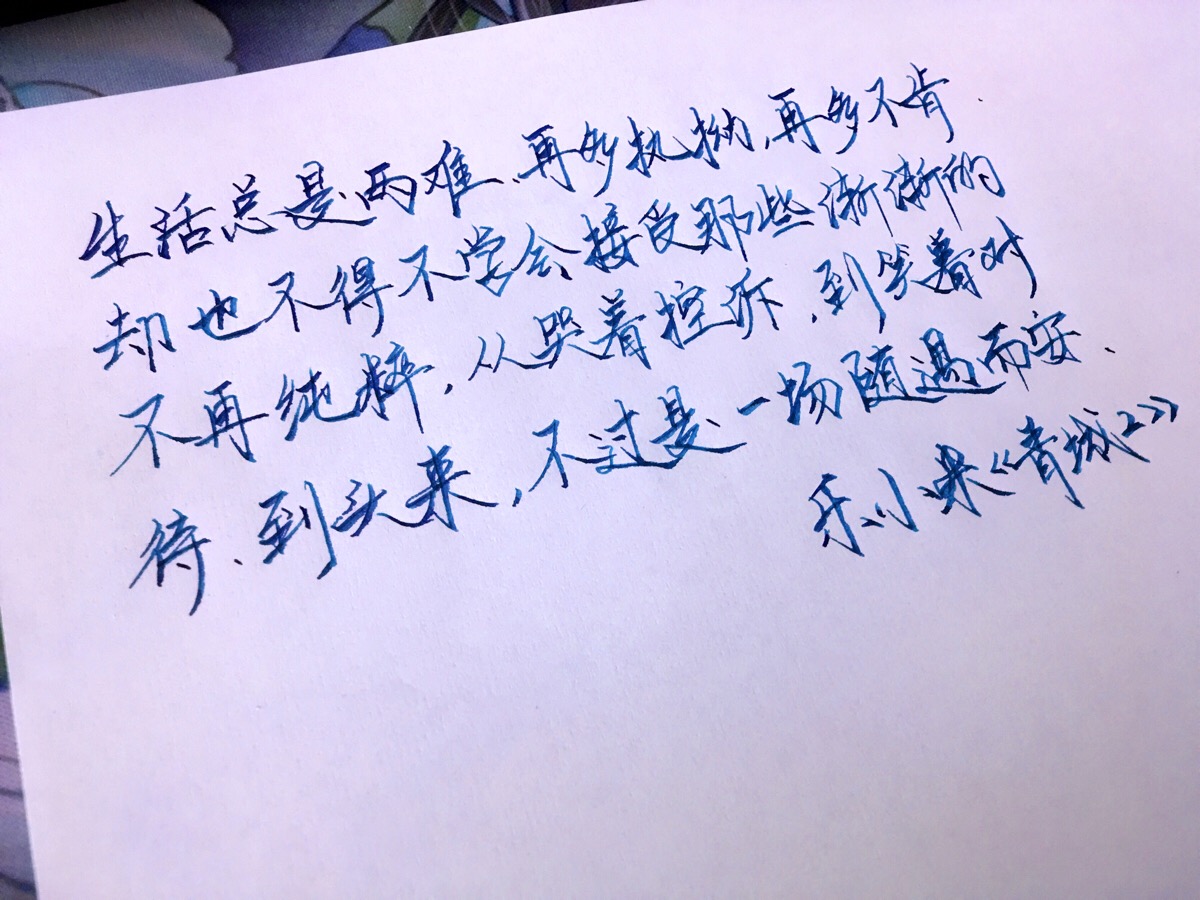 生活总是两难、再多执拗,再多不肯.
却也不得不学会接受那些渐渐的
不再纯粹,从哭着控诉,到笑着对
待、到头来,不过是一场随遇而安.
乐小米《青城2》